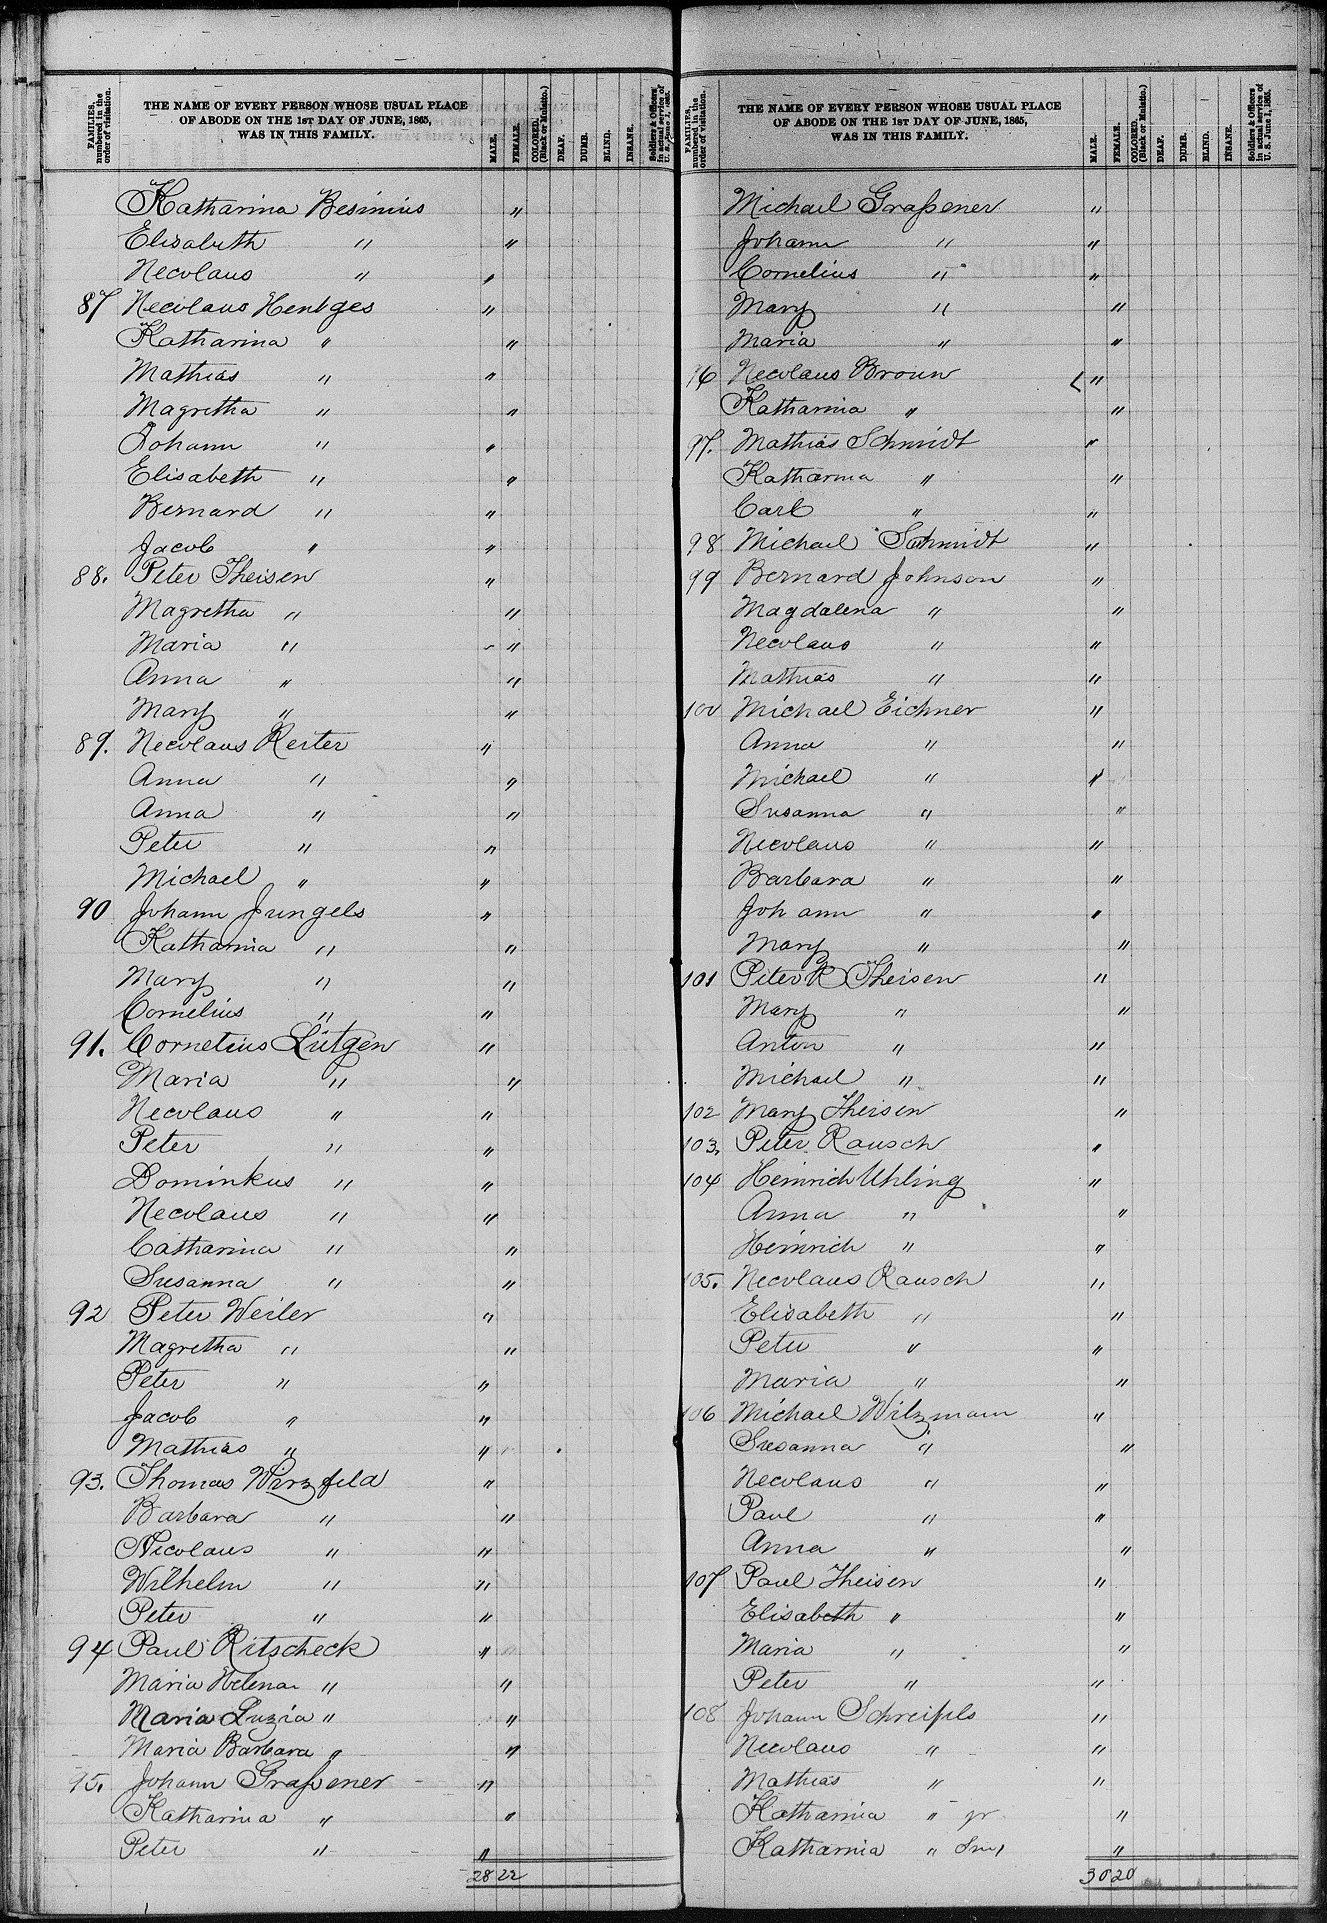 FAMILIES, numbered in the order of visitation.
THE NAME OF EVERY PERSON WHOSE USUAL PLACE
OF ABODE ON THE 1ST DAY OF JUNE, 1865,
WAS IN THIS FAMILY.
MALE.
FEMALE.
COLORED. (Black or Mulatto.)
DEAF.
DUMB.
BLIND.
INSANE.
Soldiers & Officers in actual service of U. S. June 1, 1865.
Katharina Besinius "
Elisabeth " "
Necolaus " "
87 Necolaus Hentges "
Katharina " "
Mathias " "
Magretha " "
Johann " "
Elisabeth " "
Bernard " "
Jacob " "
88. Peter Theisen "
Magretha " "
Maria " "
Anna " "
Mary " "
89. Necolaus Reiter "
Anna " "
Anna " "
Peter " "
Michael " "
90 Johann Jungels "
Katharina " "
Mary " "
Cornelius " "
91. Cornelius Lütgen "
Maria " "
Necolaus " "
Peter " "
Dominkus " "
Necolaus " "
Catharina " "
Susanna " "
92 Peter Weiler "
Magretha " "
Peter " "
Jacob " "
Mathias " "
93. Thomas Wirzfeld "
Barbara " "
Nicolaus " "
Wilhelm " "
Peter " "
94 Paul Ritscheck "
Maria Helena " "
Maria Luzia " "
Maria Barbara " "
95. Johann Graßener "
Katharina " "
Peter " "
28 22
FAMILIES, numbered in the order of visitation.
THE NAME OF EVERY PERSON WHOSE USUAL PLACE
OF ABODE ON THE 1ST DAY OF JUNE, 1865,
WAS IN THIS FAMILY.
MALE.
FEMALE.
COLORED. (Black or Mulatto.)
DEAF.
DUMB.
BLIND.
INSANE.
Soldiers & Officers in actual service of U. S. June 1, 1865.
Michael Graßener "
Johann " "
Cornelius " "
Mary " "
Maria " "
96 Necolaus Broun "
Katharina " "
97. Mathias Schmidt "
Katharina " "
Carl " "
98 Michael Schmidt "
99 Bernard Johnson "
Magdalena " "
Necolaus " "
Mathias " "
100 Michael Eichner "
Anna " "
Michael " "
Susanna " "
Necolaus " "
Barbara " "
Johann " "
Mary " "
101 Peter R Theisen "
Mary " "
Anton " "
Michael " "
102 Mary Theisen "
103. Peter Rausch "
104 Heinrich Uhling "
Anna " "
Heinrich " "
105. Necolaus Rausch "
Elisabeth " "
Peter " "
Maria " "
106 Michael Witzmann "
Susanna " "
Necolaus " "
Paul " "
Anna " "
107 Paul Theisen "
Elisabeth " "
Maria " "
Peter " "
108 Johann Schreifels "
Necolaus " "
Mathias " "
Katharina " jr "
Katharina " "
30 20